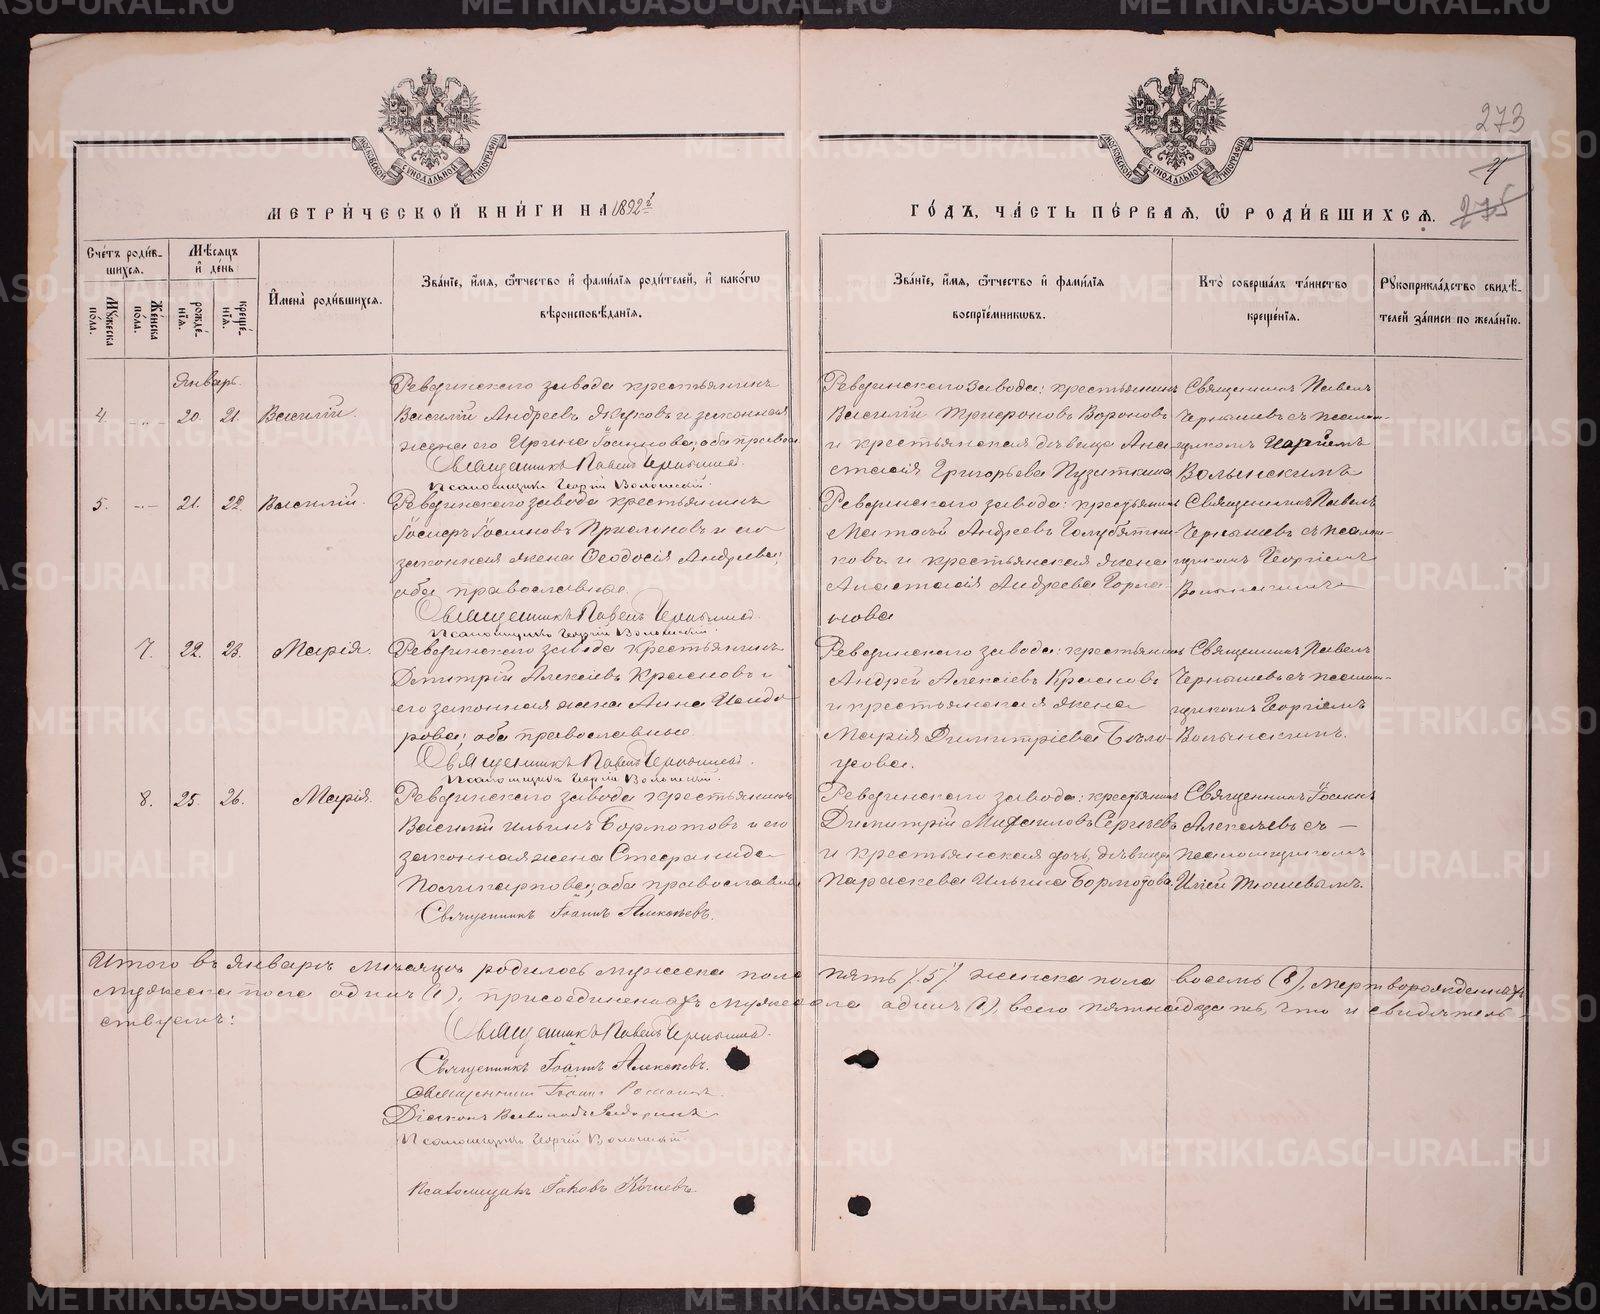 273
4
275
МОСКОВСКОЙ СѴНОДАЛЬНОЙ ТИПОГРАФІИ
МОСКОВСКОЙ СѴНОДАЛЬНОЙ ТИПОГРАФІИ
МЕТРИ́ЧЕСКОЙ КНИ́ГИ НА 1892й
ГО́ДЪ, ЧА́СТЬ ПЕ́РВАЯ, Ѡ РОДИ́ВШИХСЯ.
Сче́тъ роди́в-
шихся.
Мѣ́сяцъ
и де́нь
Мꙋжеска по́ла.
Же́нска по́ла.
рожде́-
нїя.
креще́-
нїя.
И҆мена̀ роди́вшихся.
Зва́нїе, и҆́мя, ѻ҆́тчество и҆ фами́лїя роди́телей, и҆ како́гѡ
вѣроисповѣ́данїя.
Зва́нїе, и҆́мя, ѻ҆́тчество и҆ фами́лїя
воспрїе́мникѡвъ.
Кто̀ соверша́лъ та́инство
креще́нїя.
Рꙋкоприкла́дство свидѣ́-
телей за́писи по жела́нїю.
Январь.
4. -"- 20. 21. Василій.
Ревдинскаго завода крестьянинъ
Василій Андреевъ Жуковъ и законная
жена его Ирина Іосипова; оба правосл.
Священникъ Павелъ Чернышевъ.
Псаломщикъ Георгій Волынскій.
Ревдинскаго завода: крестьянинъ
Василій Трифоновъ Вороновъ
и крестьянская дѣвица Ана-
стасія Григорьева Пузаткина
Священникъ Павелъ
Чернышевъ съ псалом-
щикомъ Георгіемъ
Волынскимъ
5. -"- 21. 22. Василій.
Ревдинскаго завода крестьянинъ
Іосифъ Іосиповъ и его
законная жена Ѳеодосія Андреева;
оба православные.
Священникъ Павелъ Чернышевъ.
Псаломщикъ Георгій Волынскій.
Ревдинскаго завода: крестьянинъ
Матѳей Андреевъ Голубятни-
ковъ и крестьянская жена
Анастасія Андреева Горла-
нова
Священникъ Павелъ
Чернышевъ съ псалом-
щикомъ Георгіемъ
Волынскимъ
7. 22. 23. Марія.
Ревдинскаго завода крестьянинъ
Дмитрій Алексѣевъ Красновъ и
его законная жена Анна Исидо-
рова; оба православные
Священникъ Павелъ Чернышевъ.
Псаломщикъ Георгій Волынскій.
Ревдинскаго завода: крестьянинъ
Андрей Алексѣевъ Красновъ
и крестьянская жена
Марія Димитріева Бѣло-
усова.
Священникъ Павелъ
Чернышевъ съ псалом-
щикомъ Георгіемъ
Волынскимъ.
8. 25. 26. Марія.
Ревдинскаго завода крестьянинъ
Василій Ильинъ Бормотовъ и его
законная жена Стефанида
Поликарпова; оба православные
Священникъ Іоаннъ Алексѣевъ.
Ревдинскаго завода: крестьянинъ
Димитрій Михаиловъ Сергѣевъ
и крестьянская дочь, дѣвица
Параскева Ильина Бормотова.
Священникъ Іоаннъ
Алексѣевъ съ —
псаломщикомъ
Итого въ Январѣ мѣсяцѣ родилось мужеска пола пять (5) женска пола восемь (8), мертворожденныхъ
мужеска пола одинъ (1), присоединенныхъ муж. пола одинъ (1), всего пятнадцать, что и свидѣтель-
ствуемъ:
Священникъ Павелъ Чернышевъ.
Священникъ Іоаннъ Алексѣевъ.
Священникъ Іоаннъ
Діаконъ
Псаломщикъ Георгій Волынскій.
Псаломщикъ Іаковъ
METRIKI.GASO-URAL.RU